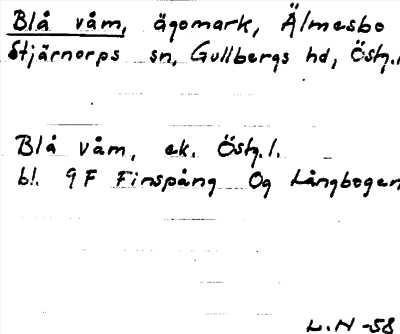 Blå våm, ägomark, Älmesbo
Stjärnorps sn, Gullbergs hd, Östg.l
Blå våm, ek. Östg.l.
bl. 9F Finspång Og Långbogen
L.N -58